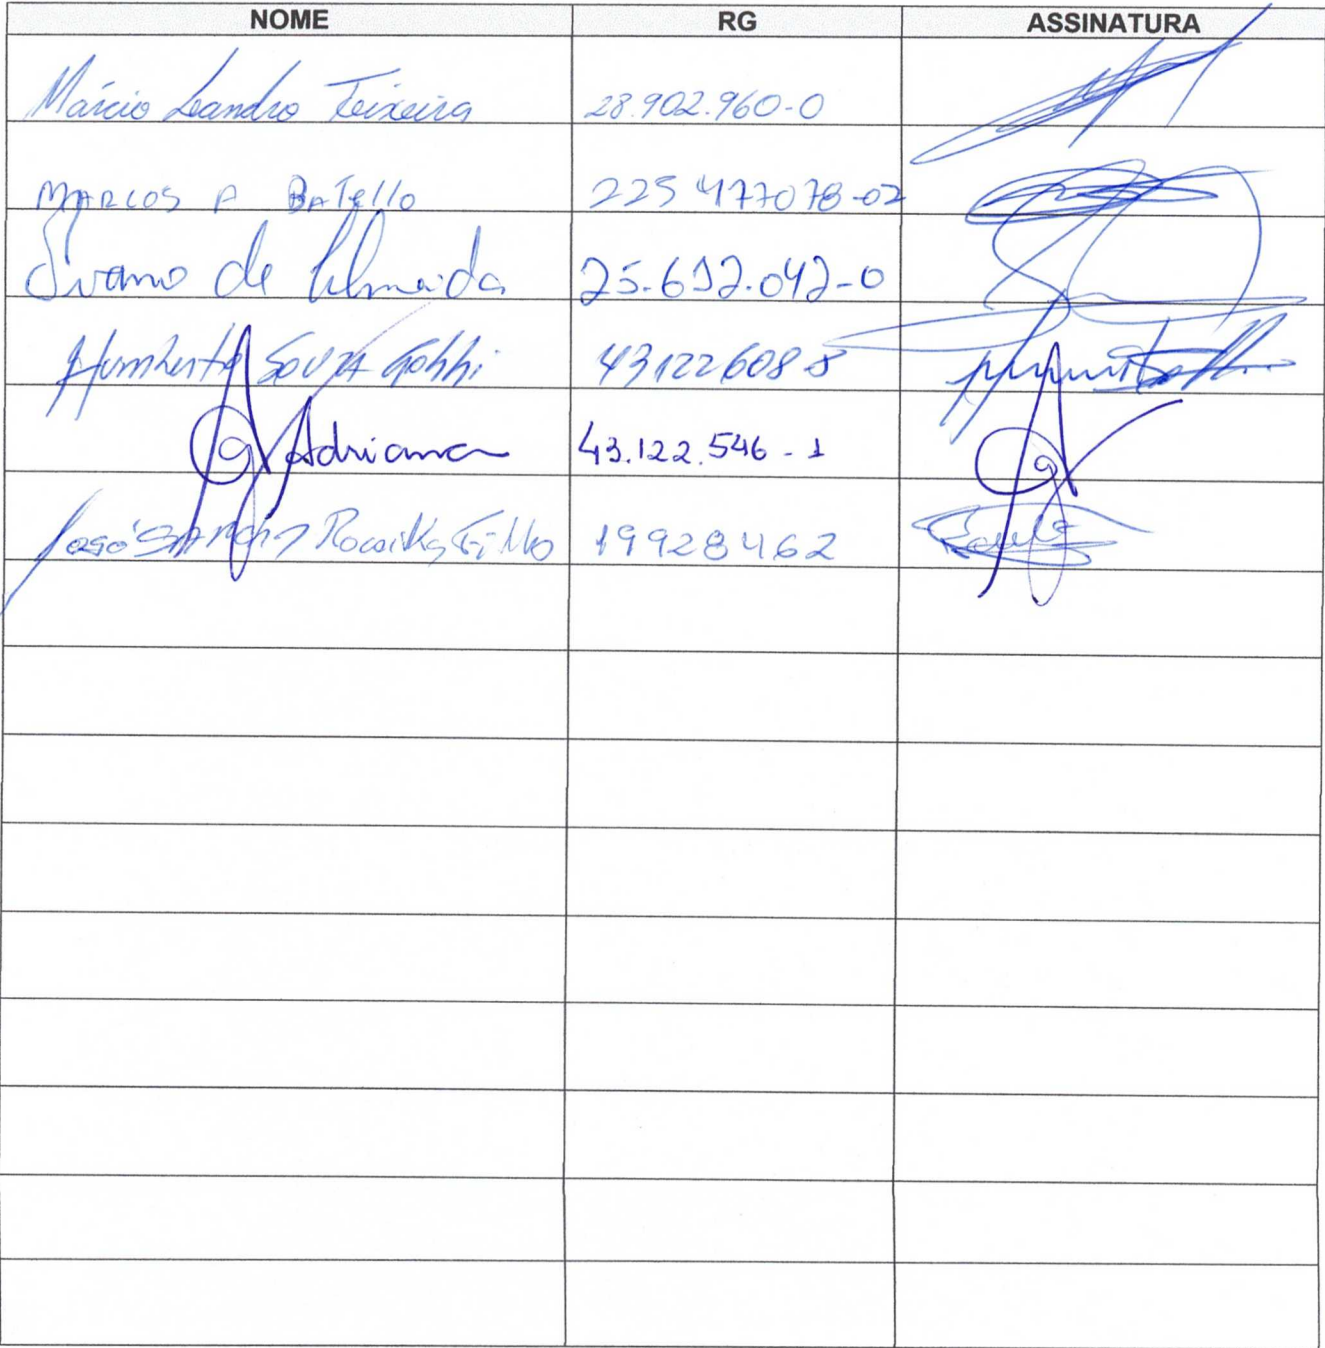 NOME RG ASSINATURA
Márcio Leandro Teixeira 28.902.960-0
MARCOS A BATello 225 477078-02
Ivano de Almeida 25.692.042-0
Humberto SOUZA Gobbi 431226088
Adriana 43.122.546-1
José Filho 19928462